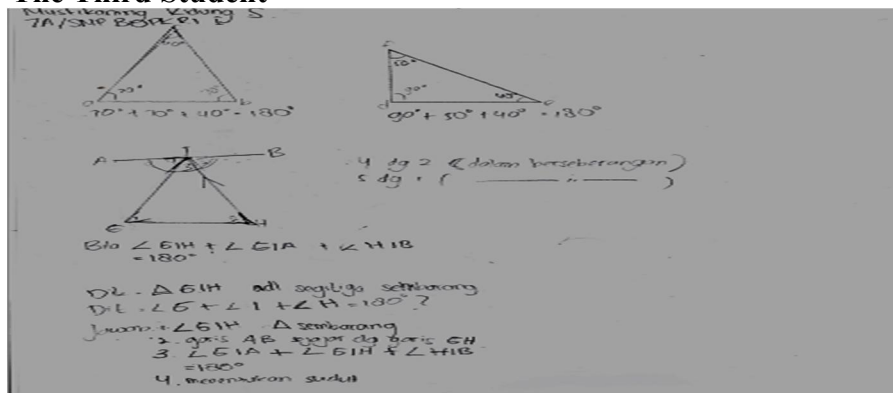 The Third Student
7A/SMP BOPKRI
40°
70° 70°
a b
70° + 70° + 40° = 180°
50°
90° 40°
d e
90° + 50° + 40° = 180°
A I B
4 dg 2 (dalam berseberangan)
5 dg 1 ( ——— " ——— )
G H
∠GIH + ∠GIA + ∠HIB
= 180°
Dik = △ GIH adl segitiga sembarang
Dit = ∠G + ∠I + ∠H = 180° ?
Jawab : ∠GIH △ sembarang
2. garis AB sejajar dg garis GH
3. ∠GIA + ∠GIH + ∠HIB
= 180°
4. menentukan sudut